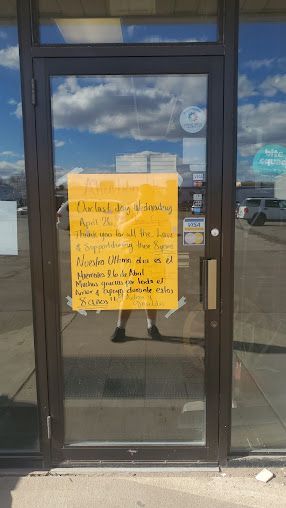 Attention
Our last day Wednesday
April 26.
Thank you for all the Love
& Support during these 8 years
Nuestro Ultimo dia es el
Miercoles 26 de Abril
Muchas gracias por todo el
Amor & apoyo durante estos
8 años!!
VISA